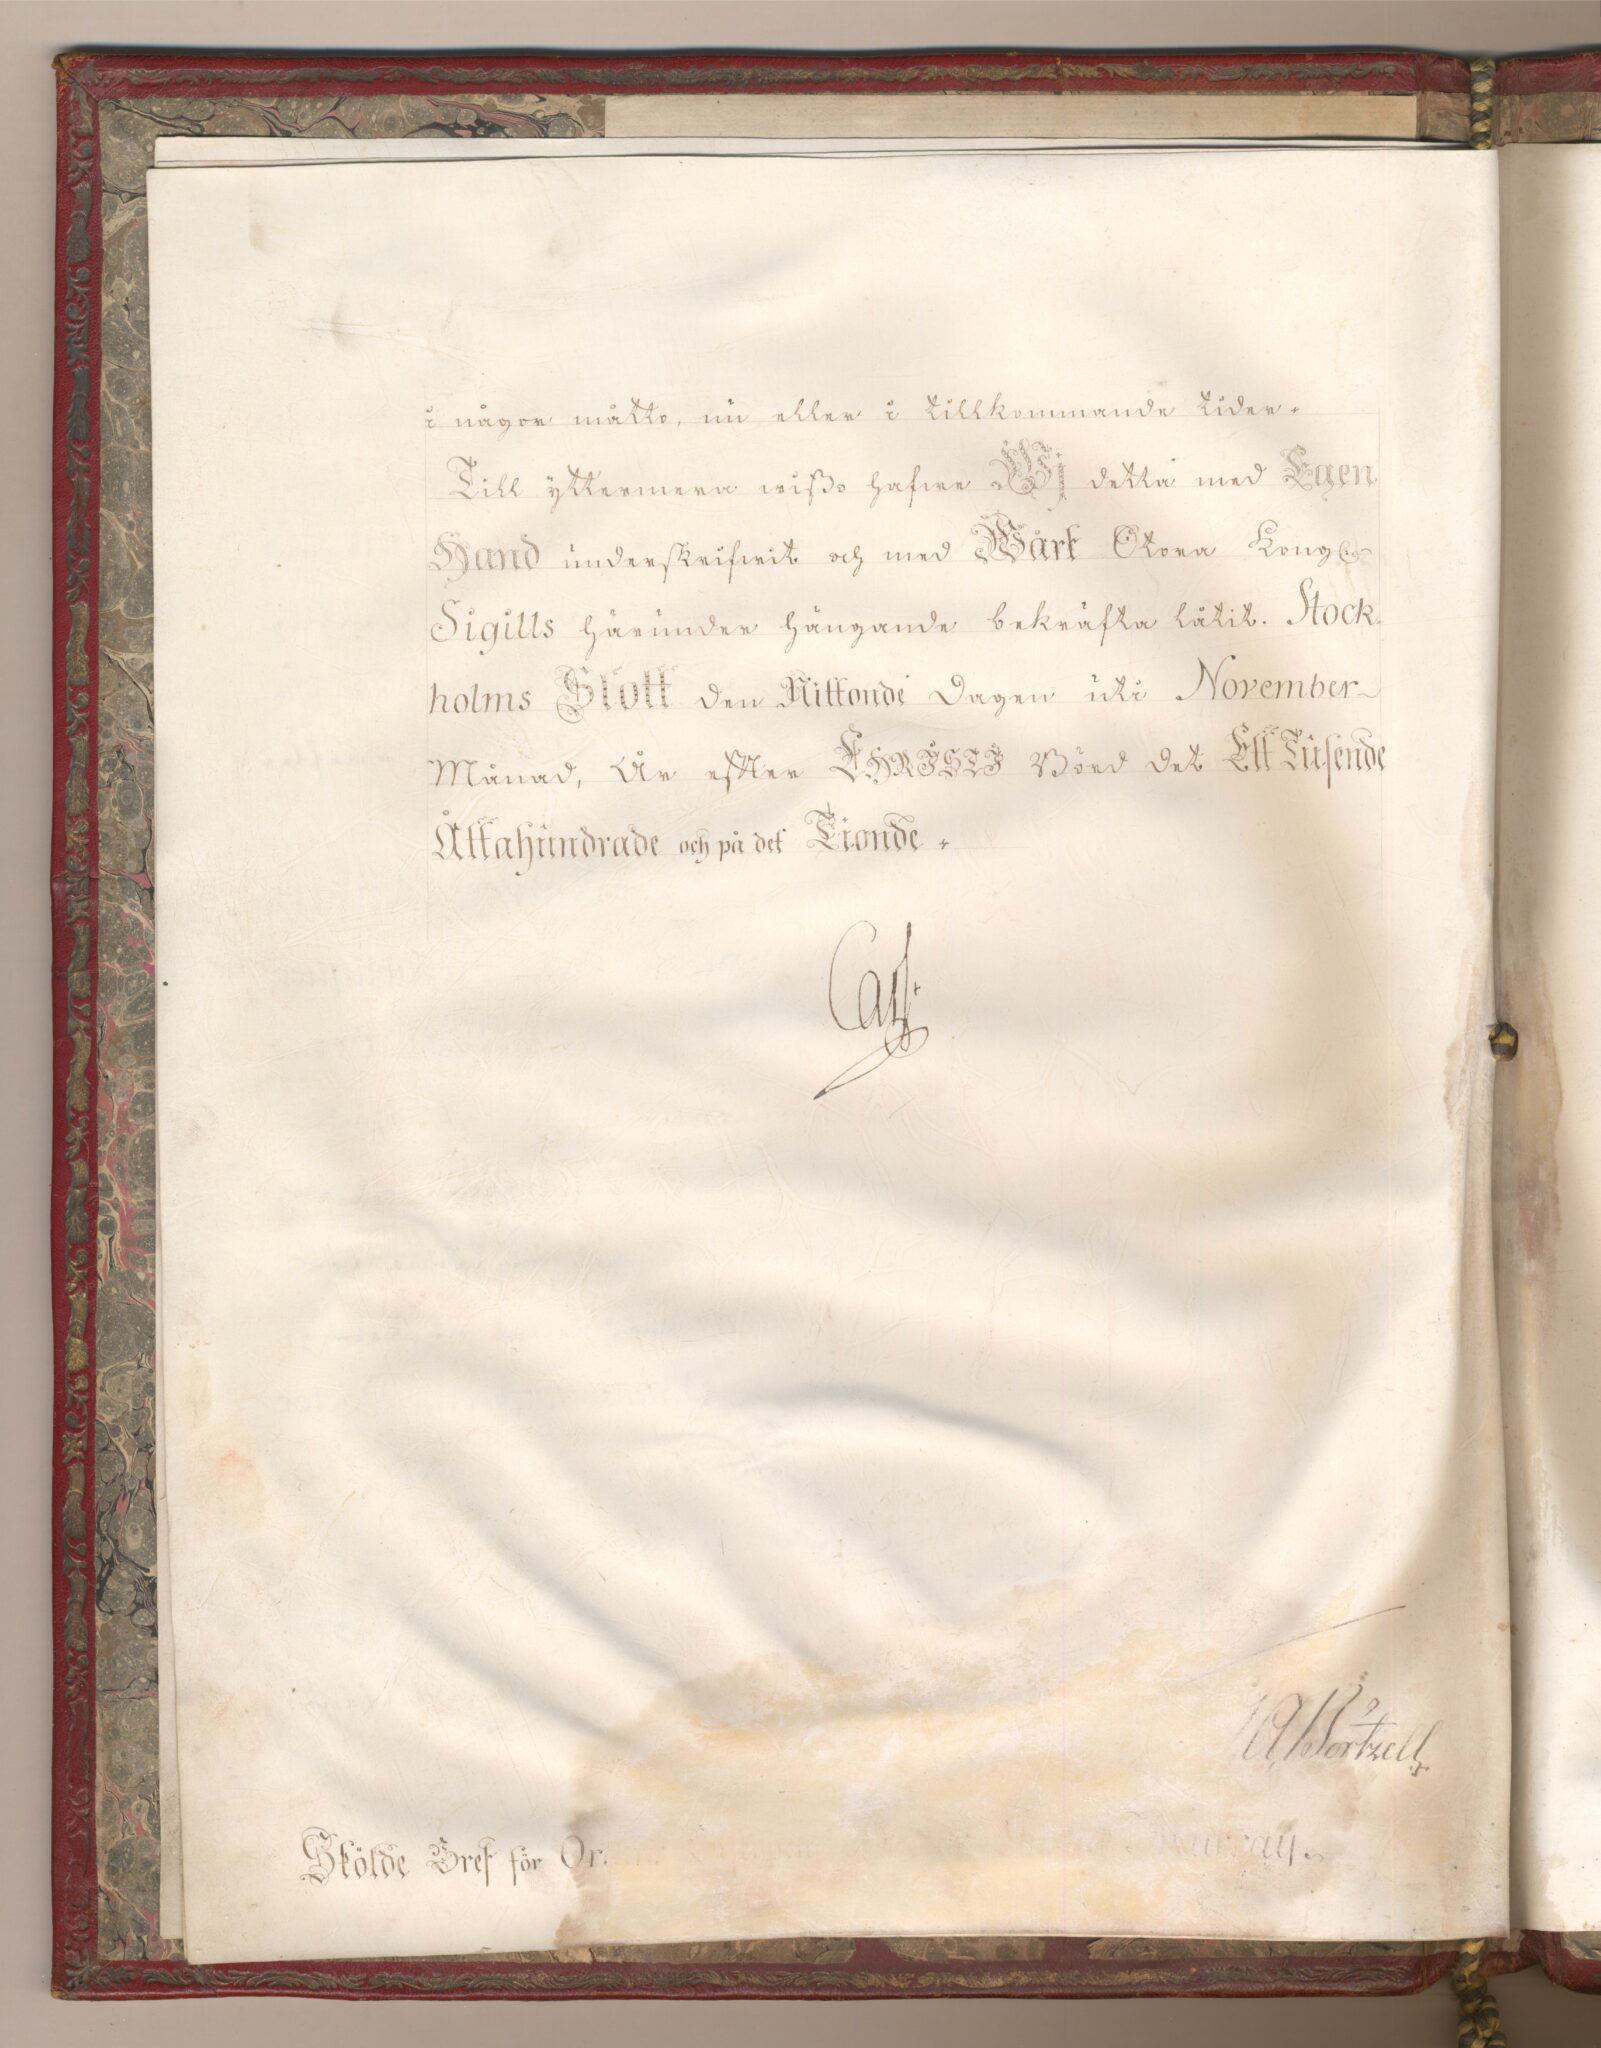 i någor måtto, nu eller i tillkommande tider.
Till yttermera wißo hafwe Wij detta med Egen
Hand underskrifwit och med Wårt Stora Kongl.
Sigills härunder hängande bekräfta låtit. Stock-
holms Slott den Nittonde Dagen uti November
Månad, År efter CHRISTI Börd det Ett Tusende
Åttahundrade och på det Tionde.
Carl
Börtzell
Skölde Bref för
Murray.